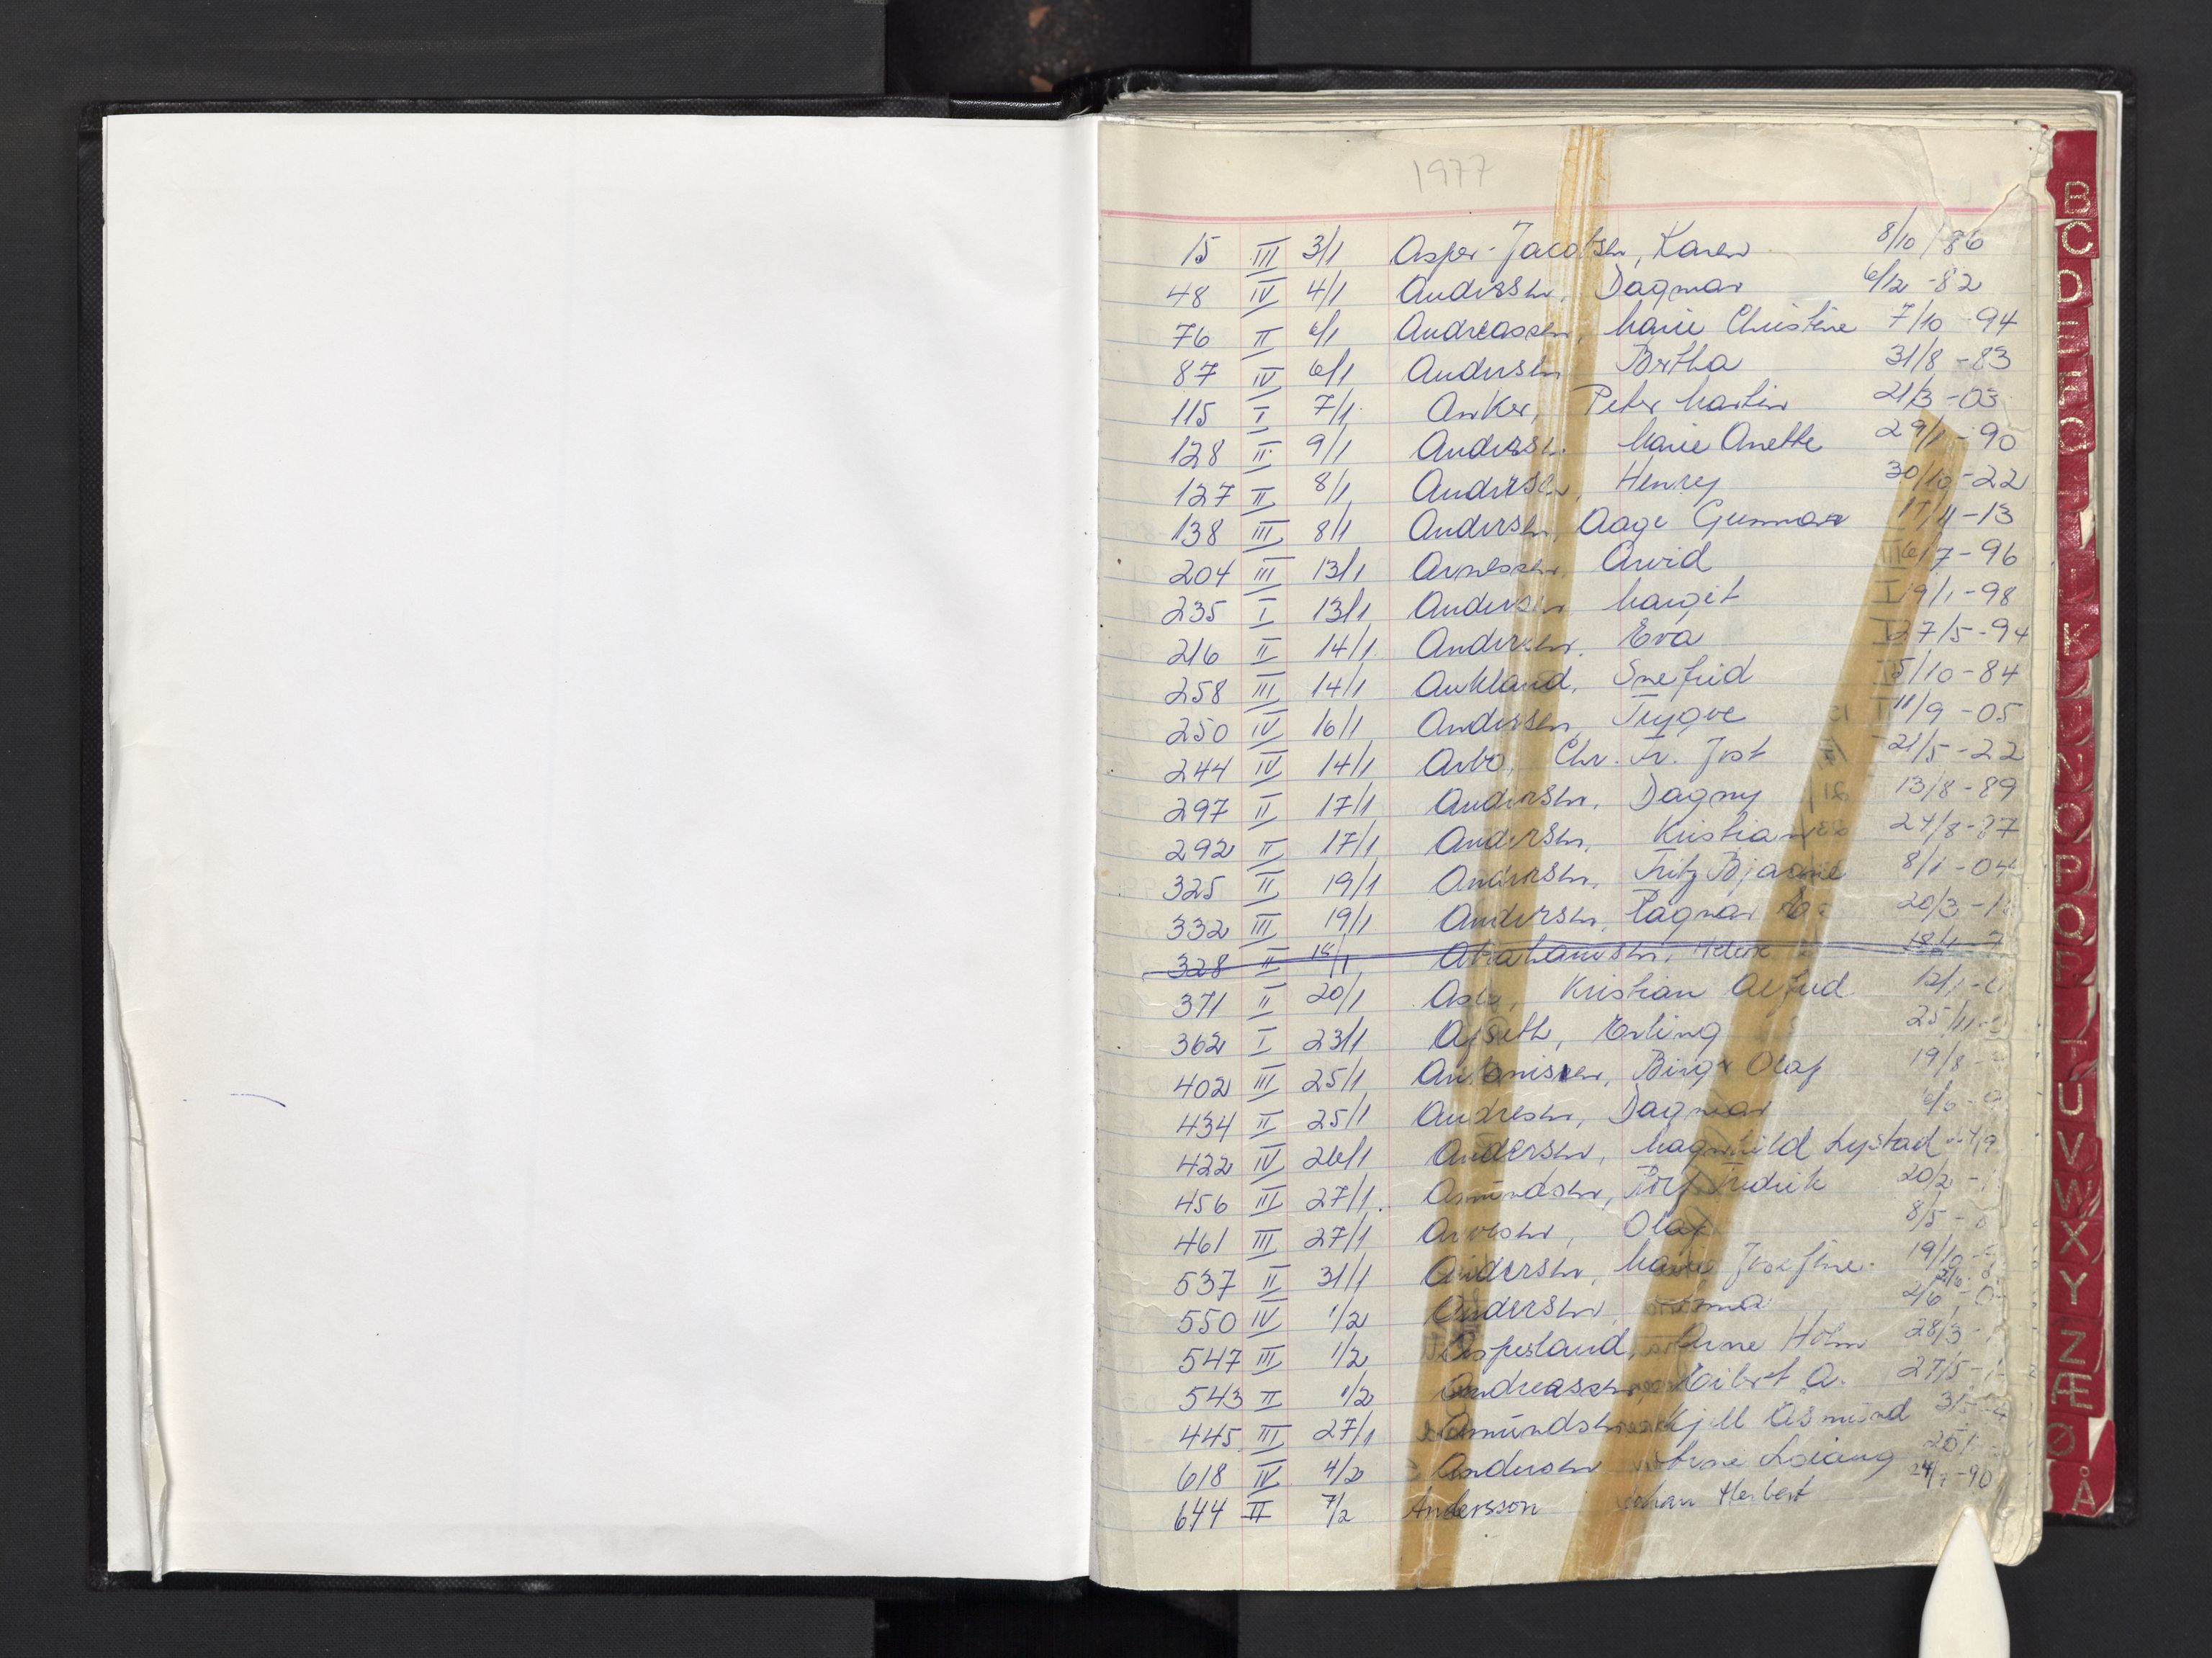 1977
15 III 3/1 Asper-Jacobsen, Karen 8/10/86
48 IV 4/1 Andersen, Dagmar 6/12 -82
76 II 6/1 Andreassen, Marie Christine 7/10 -94
87 IV 6/1 Andersen Bertha 31/8 -83
115 I 7/1 Anker, Peter Martin 21/3 -03
128 II 9/1 Andersen. Marie Anette 29/1 -90
127 II 8/1 Andersen, Henry 30/10 -22
138 III 8/1 Andersen, Aage Gunnar 17/11 -13
204 III 13/1 Arnesen, Arvid 6/7 -96
235 I 13/1 Andersen Margit 19/1 -98
216 II 14/1 Andersen. Eva 27/5 -94
258 III 14/1 Aukland, Snefrid 5/10 -84
250 IV 16/1 Andersen, Trygve 11/9 -05
244 IV 14/1 Arbo, Chr. Fr. Jost 21/5 -22
297 II 17/1 Andersen, Dagny 13/8 -89
292 II 17/1 Andersen, Kristian 24/8 -87
325 II 19/1 Andersen, Fritz Bjarne 8/1 -04
332 III 19/1 Andersen, Ragnar 20/3 -1
328 II 18/1 Abrahamsen, Helene 18/1
371 II 20/1 Kristian Alfred 12/1
362 I 23/1 Afseth, Erling 25/11
402 III 25/1 Antonisen, Birger Olaf 19/8
434 II 25/1 Andresen, Dagmar
422 IV 26/1 Andersen, Magnhild Lystad
456 III 27/1 Asmundsen, Rolf Fredrik 20/2 -
461 III 27/1 Arnesen, Olaf 8/5 -
537 II 31/1 Andersen, Marie Josefine 19/10
550 IV 1/2 Andersen, 2/6
547 III 1/2 Aspesland, Arne Holm 28/3 -
543 II 1/2 Andreassen, Eilert A. 27/5 -1
445 III 27/1 Asmundsen Kjell Asmund 3/5
618 IV 4/2 Andersen
644 II 7/2 Andersson Johan Herbert 24/7 -90
B
C
D
E
F
G
K
N
O
P
Q
R
T
U
V
W
X
Y
Z
Æ
Ø
Å